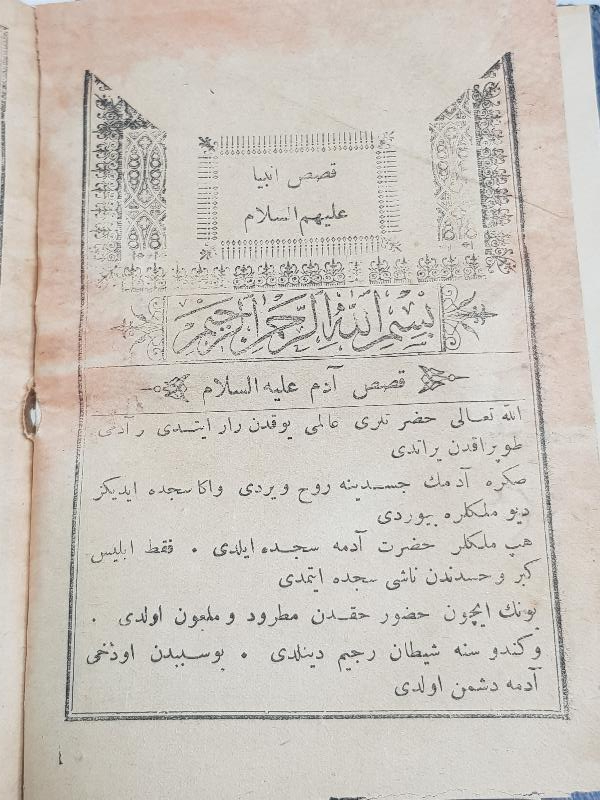 قصص انبيا
عليهم السلام
بسم الله الرحمن الرحيم
قصص آدم عليه السلام
الله تعالى حضرتلرى عالمى يوقدن وار ايتدى و آدمى
طوپراقدن يراتدى
صكره آدمك جسدينه روح ويردى واكا سجده ايديكز
ديو ملكلره بيوردى
هپ ملكلر حضرت آدمه سجده ايلدى . فقط ابليس
كبر و حسدندن ناشى سجده ايتمدى
بونك ايچون حضور حقدن مطرود و ملعون اولدى .
و كندوسنه شيطان رجيم دينلدى . بوسببدن اودخى
آدمه دشمن اولدى
١